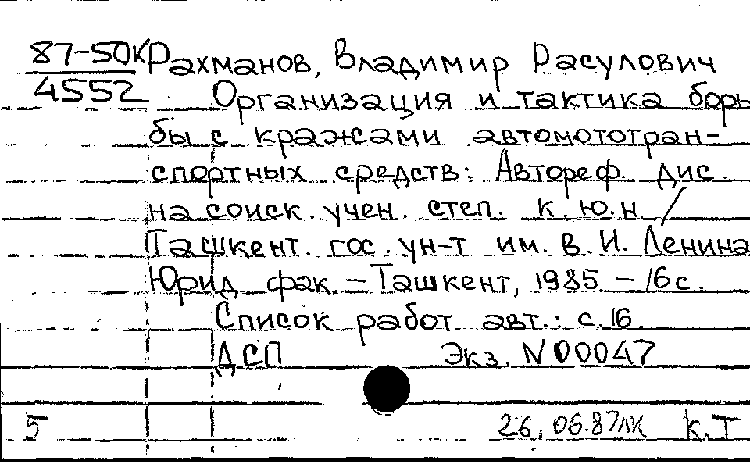 87-50К Рахманов, Владимир Расулович
4552 Организация и тактика борь
бы с кражами автомототран-
спортных средств: Автореф. дис.
на соиск. учен. степ. к.ю.н /
Ташкент. гос. ун-т им. В. И. Ленина
Юрид фак. - Ташкент, 1985 - 16 с.
Список работ авт.: с.16.
ДСП Экз. N 00047
5 26.06.87 К.Т